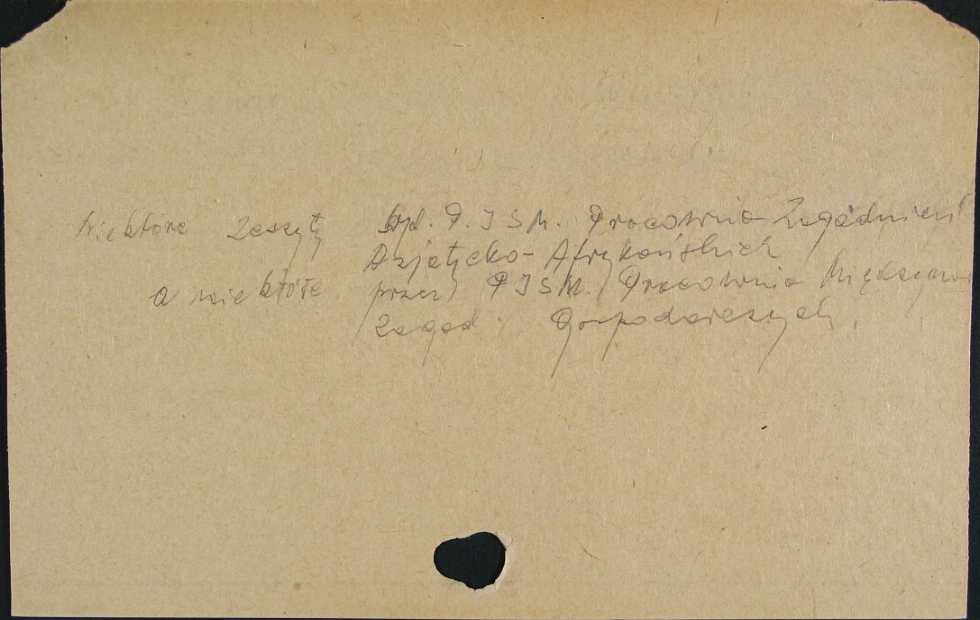 Niektóre zeszyty wyd. P.I.S.M. Pracownia Zagadnień
Azjatycko-Afrykańskich
a niektóre przez PISM. Pracownia Międzynar
Zagad. Gospodarczych.